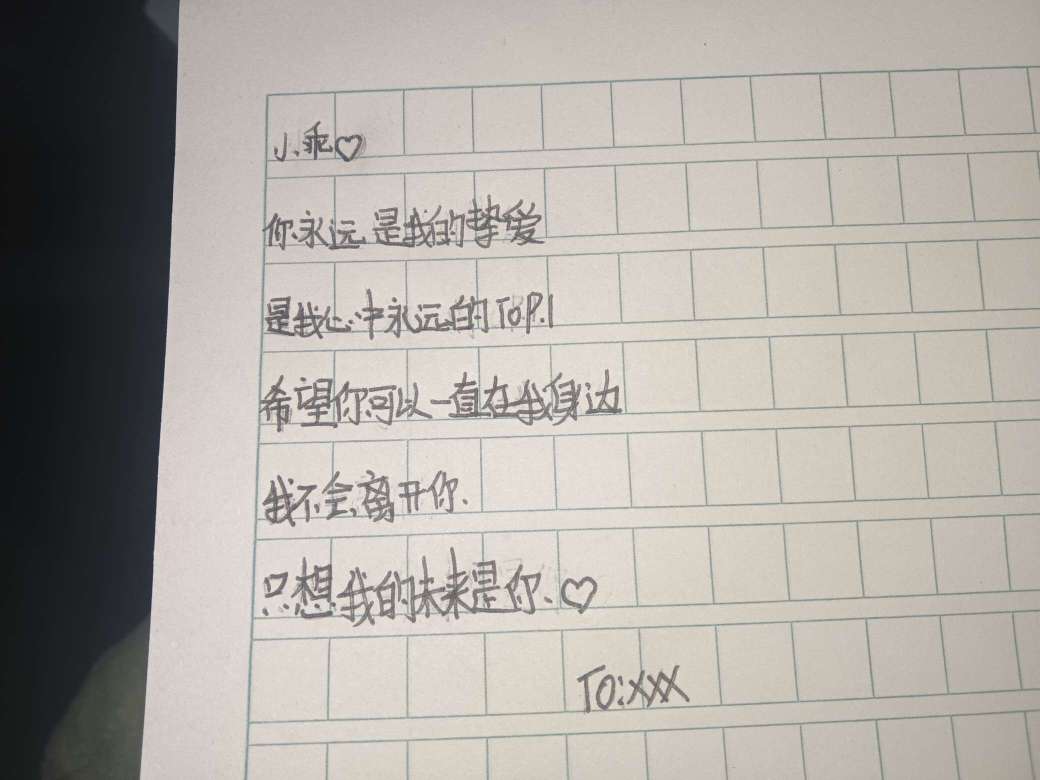 小乖♡
你永远是我的挚爱
是我心中永远的TOP.1
希望你可以一直在我身边
我不会离开你.
只想我的未来是你.♡
TO:XXX